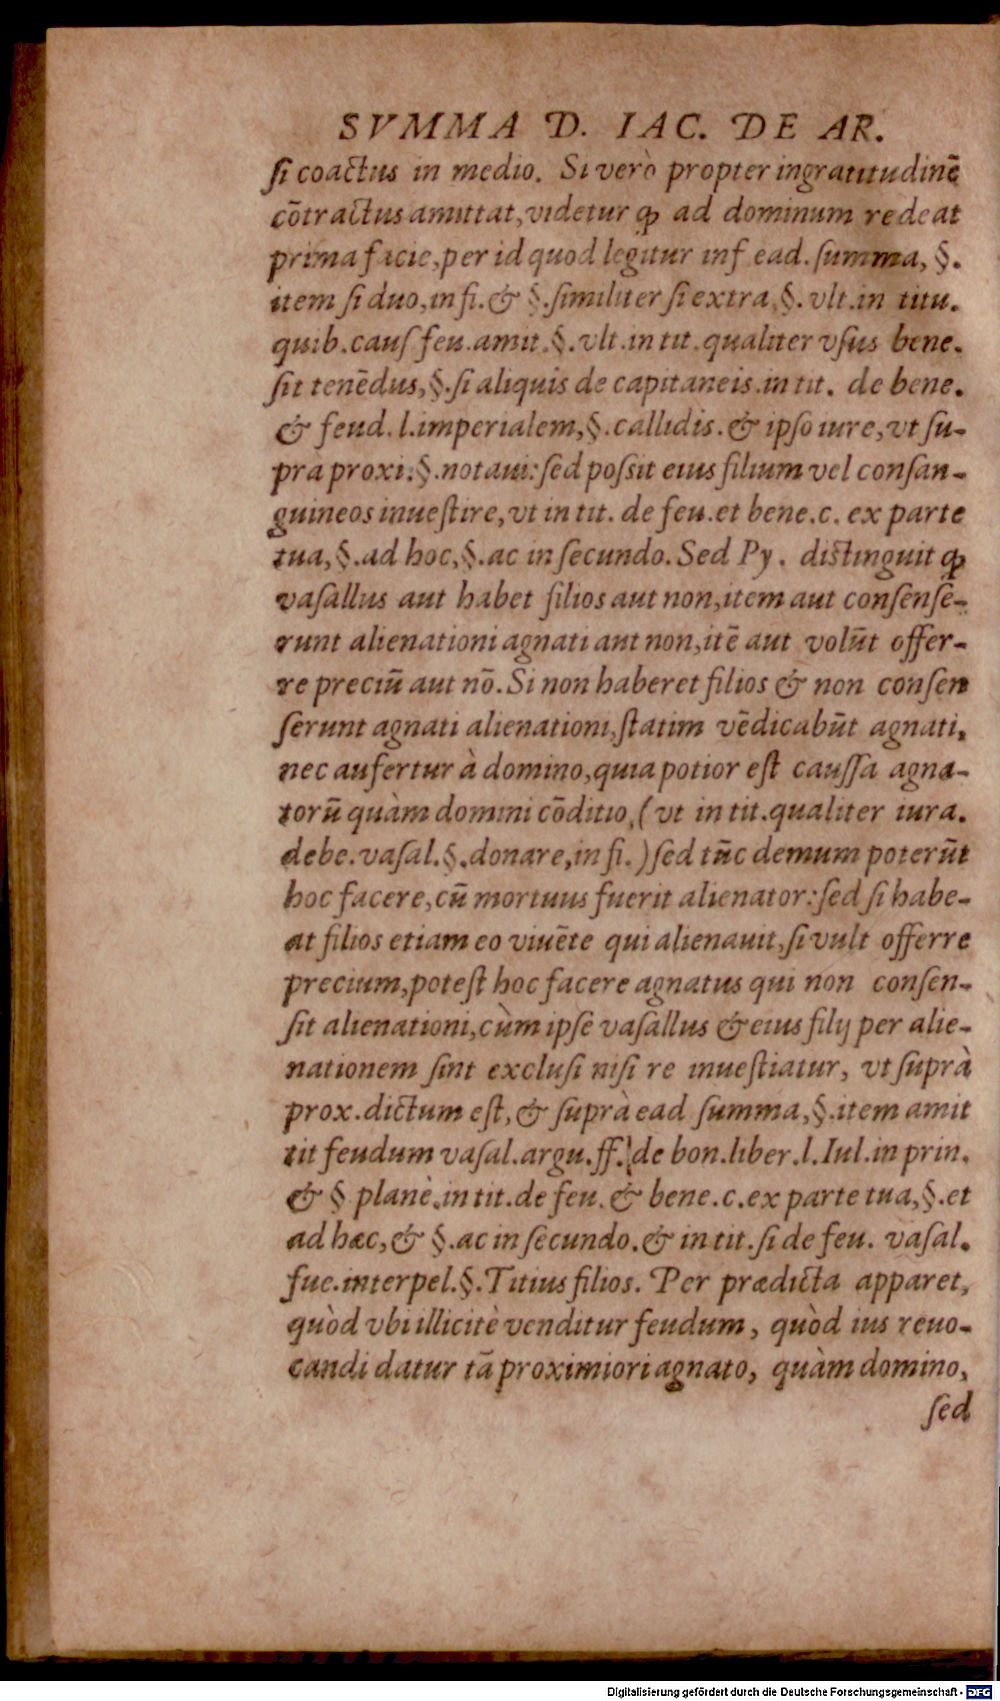 SVMMA D. IAC. DE AR.
ſi coactus in medio. Si verò propter ingratitudinē
cōtractus amittat,videtur ꝙ ad dominum redeat
prima facie,per id quod legitur inf ead.ſumma, §.
item ſi duo,in fi.& §.ſimiliter ſi extra,§. vlt.in titu.
quib.cauſ feu.amit.§.vlt.in tit.qualiter vſus bene.
ſit tenēdus,§.ſi aliquis de capitaneis.in tit. de bene.
& feud.l.imperialem,§.callidis.& ipſo iure,vt ſu-
pra proxi.§.notaui:ſed poſsit eius filium vel conſan-
guineos inueſtire,vt in tit. de feu.et bene.c. ex parte
tua,§.ad hoc,§.ac in ſecundo.Sed Py. diſtinguit ꝙ
vaſallus aut habet filios aut non,item aut conſenſe-
runt alienationi agnati aut non,itē aut volūt offer-
re preciū aut nō.Si non haberet filios & non conſen
ſerunt agnati alienationi,ſtatim vēdicabūt agnati,
nec aufertur à domino,quia potior eſt cauſſa agna-
torū quàm domini cōditio,(vt in tit.qualiter iura.
debe.vaſal.§.donare,in fi.)ſed tūc demum poterūt
hoc facere,cū mortuus fuerit alienator:ſed ſi habe-
at filios etiam eo viuēte qui alienauit,ſi vult offerre
precium,poteſt hoc facere agnatus qui non conſen-
ſit alienationi,cùm ipſe vaſallus & eius filij per alie-
nationem ſint excluſi niſi re inueſtiatur, vt ſuprà
prox.dictum eſt,& ſuprà ead ſumma,§.item amit
tit feudum vaſal.argu.ff. de bon.liber.l.Iul.in prin.
& § planè.in tit.de feu.& bene.c.ex parte tua,§.et
ad hæc,& §.ac in ſecundo.& in tit.ſi de feu. vaſal.
fue.interpel.§.Titius filios. Per prædicta apparet,
quòd vbi illicitè venditur feudum, quòd ius reuo-
candi datur tā proximiori agnato, quàm domino,
ſed
Digitalisierung gefördert durch die Deutsche Forschungsgemeinschaft - DFG